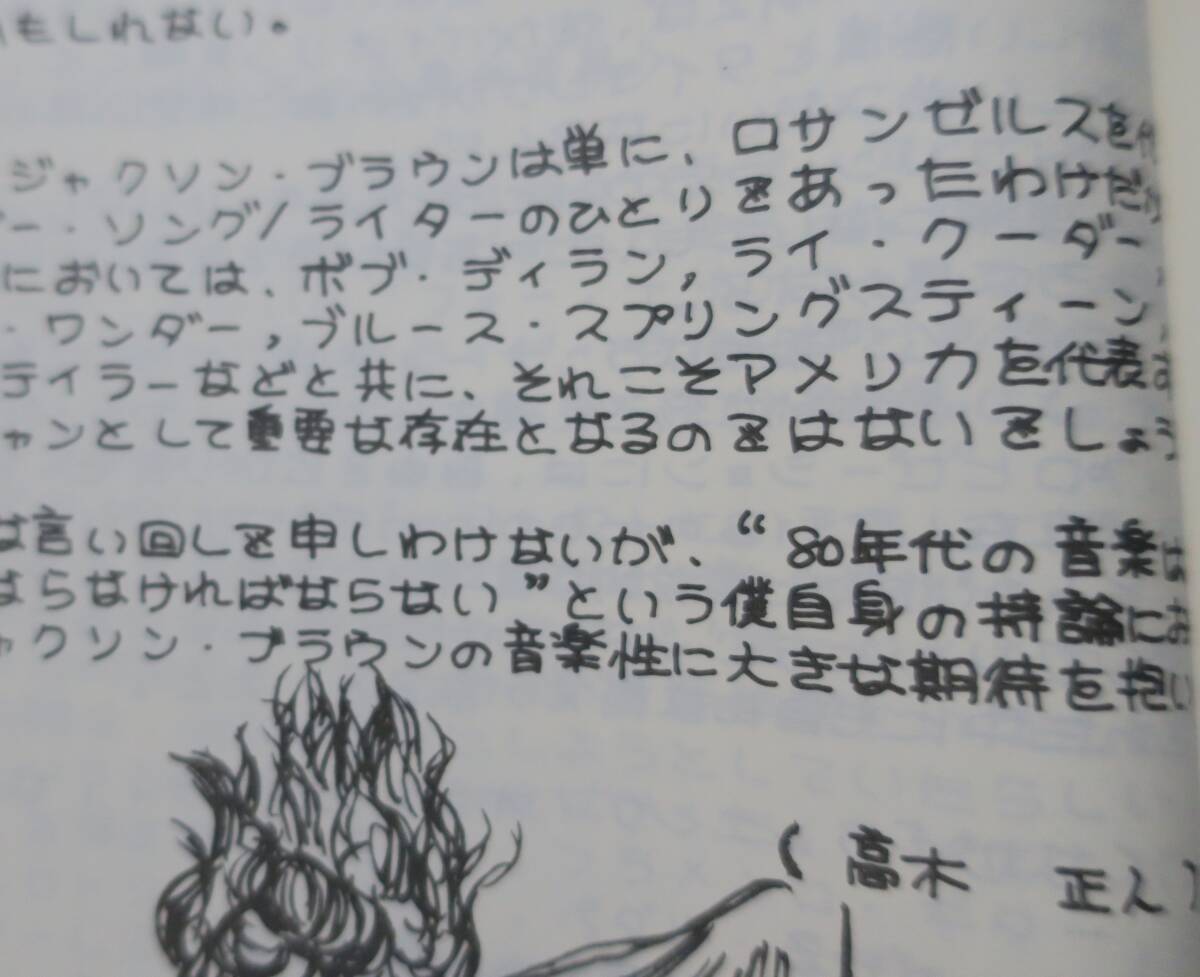 もしれない。
ジャクソン・ブラウンは単に、ロサンゼルスを代
ー・ソング/ライターのひとりであったわけだ
においては、ボブ・ディラン,ライ・クーダー,
・ワンダー,ブルース・スプリングスティーン,
テイラーなどと共に、それこそアメリカを代表す
ャンとして重要な存在となるのではないでしょう
な言い回しで申しわけないが、“80年代の音楽は
ならなければならない”という僕自身の持論にお
ャクソン・ブラウンの音楽性に大きな期待を抱い
(高木 正人)